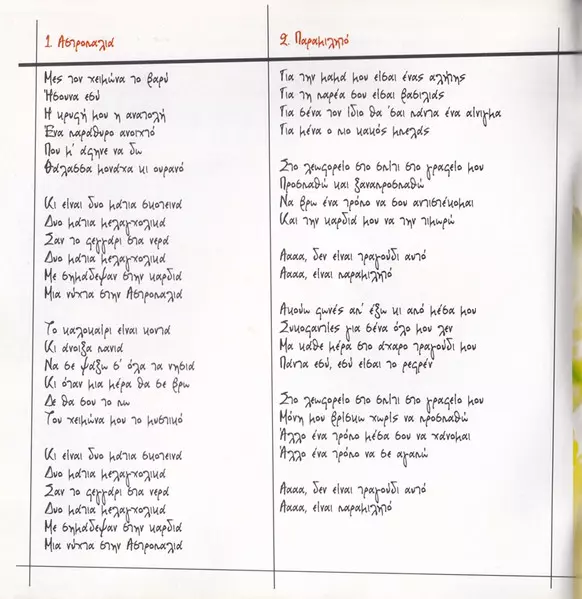 1. Αστροπαλιά
Μες τον χειμώνα το βαρύ
Ήσουνα εσύ
Η κρυφή μου η ανατολή
Ένα παράθυρο ανοιχτό
Που μ' άφηνε να δω
Θάλασσα μονάχα κι ουρανό
Κι είναι δυο μάτια σκοτεινά
Δυο μάτια μελαγχολικά
Σαν το φεγγάρι στα νερά
Δυο μάτια μελαγχολικά
Με σημάδεψαν στην καρδιά
Μια νύχτα στην Αστροπαλιά
Το καλοκαίρι είναι κοντά
Κι άνοιξα πανιά
Να σε ψάξω σ' όλα τα νησιά
Κι όταν μια μέρα θα σε βρω
Δε θα σου το πω
Του χειμώνα μου το μυστικό
Κι είναι δυο μάτια σκοτεινά
Δυο μάτια μελαγχολικά
Σαν το φεγγάρι στα νερά
Δυο μάτια μελαγχολικά
Με σημάδεψαν στην καρδιά
Μια νύχτα στην Αστροπαλιά
2. Παραμιλητό
Για την μαμά μου είσαι ένας αλήτης
Για τη παρέα σου είσαι βασιλιάς
Για σένα τον ίδιο θα 'σαι πάντα ένα αίνιγμα
Για μένα ο πιο κακός μπελάς
Στο λεωφορείο στο σπίτι στο γραφείο μου
Προσπαθώ και ξαναπροσπαθώ
Να βρω ένα τρόπο να σου αντιστέκομαι
Και την καρδιά μου να την τιμωρώ
Αααα, δεν είναι τραγούδι αυτό
Αααα, είναι παραμιλητό
Ακούω φωνές απ' έξω κι από μέσα μου
Συκοφαντίες για σένα όλο μου λεν
Μα κάθε μέρα στο άχαρο τραγούδι μου
Πάντα εσύ, εσύ είσαι το ρεφρέν
Στο λεωφορείο στο σπίτι στο γραφείο μου
Μόνη μου βρίσκω χωρίς να προσπαθώ
Άλλο ένα τρόπο μέσα σου να χάνομαι
Άλλο ένα τρόπο να σε αγαπώ
Αααα, δεν είναι τραγούδι αυτό
Αααα, είναι παραμιλητό